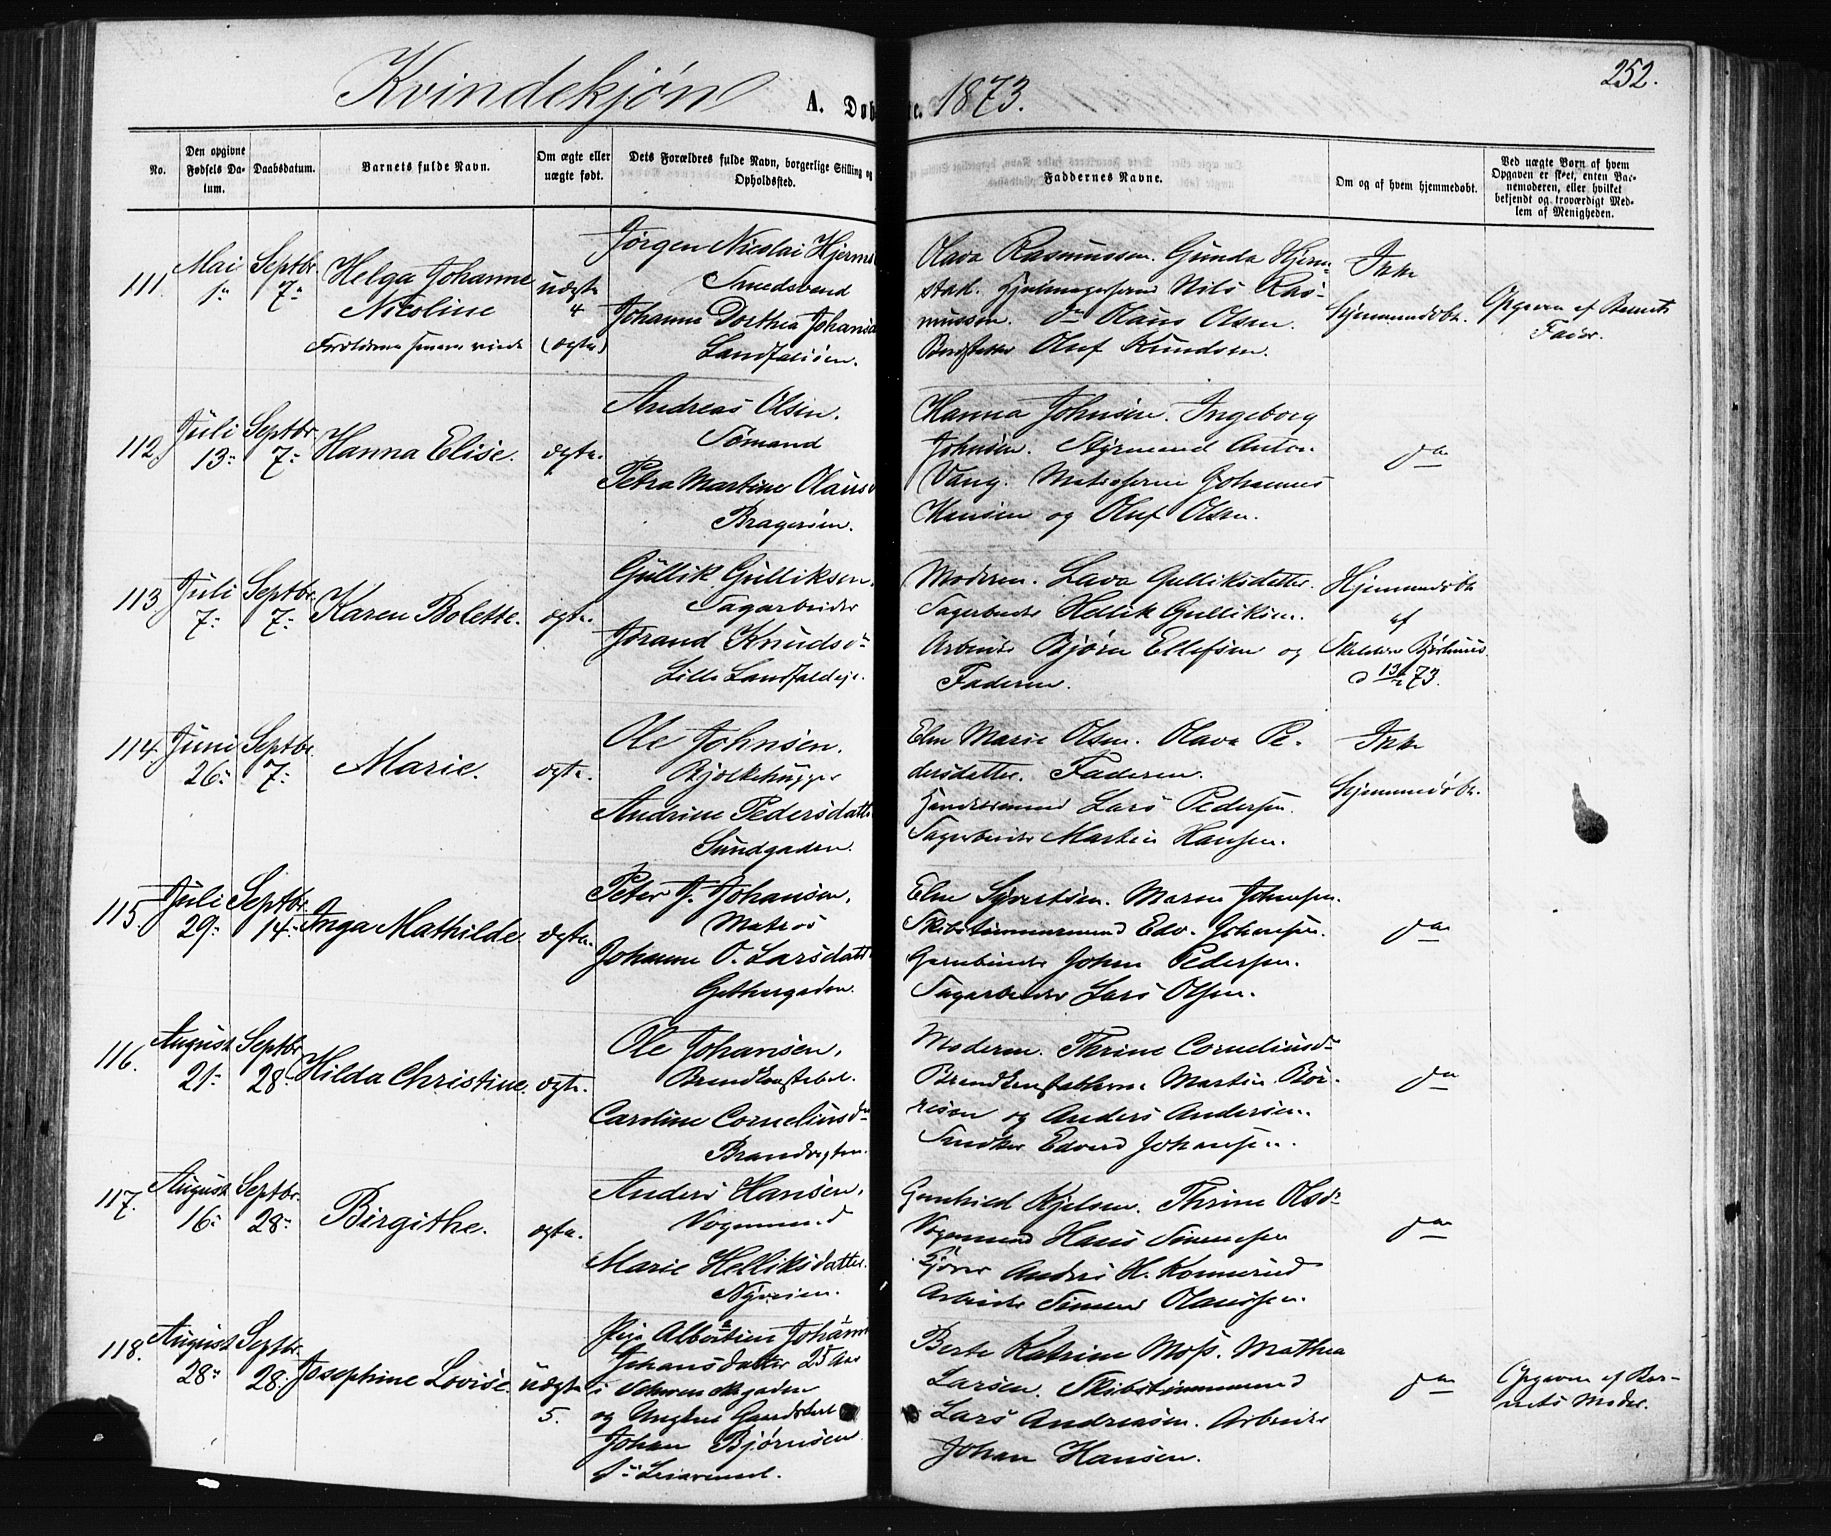 252.
Kvindekjøn A. Døb e. 1873.
No.
Den opgivne Fødsels Datum.
Daabsdatum.
Barnets fulde Navn.
Om ægte eller uægte født.
Dets Forældres fulde Navn, borgerlige Stilling og Opholdssted.
Faddernes Navne.
Om og af hvem hjemmedøbt.
Ved uægte Børn af hvem Opgaven er skeet, enten Barnemoderen, eller hvilket bekjendt og troværdigt Medlem af Menigheden.
111. Mai 1ˢ Septbr. 7ˢ
Helga Johanne
Nicoline
Forældrene senere viede
uægte
4
(ægte)
Jörgen Nicolai Hjerms
Smedsvend
Johanne Dorthea Johansd
Landfaløen.
Olava Rasmussen. Gunda Hjerm-
stad. Nils Ras-
mussen. Dº Olaus Olsen.
Oluf Knudsen.
Ikke
hjemmedøbt.
Opgaven af Barnets
Fader.
112. Juli 13ˢ Septbr. 7ˢ
Hanna Elise.
ægte.
Andreas Olsen.
Sømand
Petra Martine Olausd
Bragerøen.
Hanna Johnsen. Ingeborg
Johnsen. Styrmand Anton
Vang. Matroserne Johannes
Hansen og Oluf Olsen.
do
113. Juli 7ˢ Septbr. 7ˢ
Karen Bolette.
ægte.
Gullik Gulliksen,
Sagarbeider
Jørand Knudsd
Lille Landfaldeje.
Moderen. Lava Gulliksdatter.
Sagarbeider Hellik Gulliksen.
Arbeider Bjørn Ellefsen og
Faderen.
Hjemmedøbt
af
73.
114. Juni 26ˢ Septbr. 7ˢ
Marie.
ægte.
Ole Johnsen.
Bjelkehugger
Andrine Pedersdatt
Sundgaden.
Elen Marie Olsen. Olava Pe-
dersdatter. Faderen.
Lars Pedersen.
Sagarbeider Martin Hansen.
Ikke
hjemmedøbt.
115. Juli 29ˢ Septbr. 14ˢ
Inga Mathilde
ægte.
Peter J. Johansen.
Matros
Johanne O. Larsdatt
Gjettergaden.
Elen Syvertsen. Maren Johansen.
Skibstømmermand Edv. Johansen.
Johan Pedersen.
Sagarbeider Lars Olsen.
do
116. August 21ˢ Septbr. 28ˢ
Hilda Christine.
ægte.
Ole Johansen.
Brandkonstabel.
Caroline Corneliusd
Brandvagten.
Moderen. Thrine Corneliusd
Brandkonstablerne Martin Bör-
resen og Anders Andersen.
Snedker Edvard Johansen.
do
117. August 16ˢ Septbr. 28ˢ
Birgithe.
ægte.
Anders Hansen.
Vognmand
Marie Helliksdatter.
Nyveien.
Gunhild Kjelsen. Thrine Olsd
Vognmand Hans Simensen
Anders H. Konnerud
Arbeider Simen Olaussen.
do
118. August 28ˢ Septbr. 28ˢ
Josephine Lovise.
uægte
5.
Pige Albertine Johann
Johansdatter 25 Aar
i Schwenckegaden
og
Johan Björnsen
Hanna Berte Katrine Moss. Mathea
Larsen. Skibstømmermand
Lars Andreasen. Arbeider
Johan Hansen.
do
Opgaven af Bar-
nets Moder.